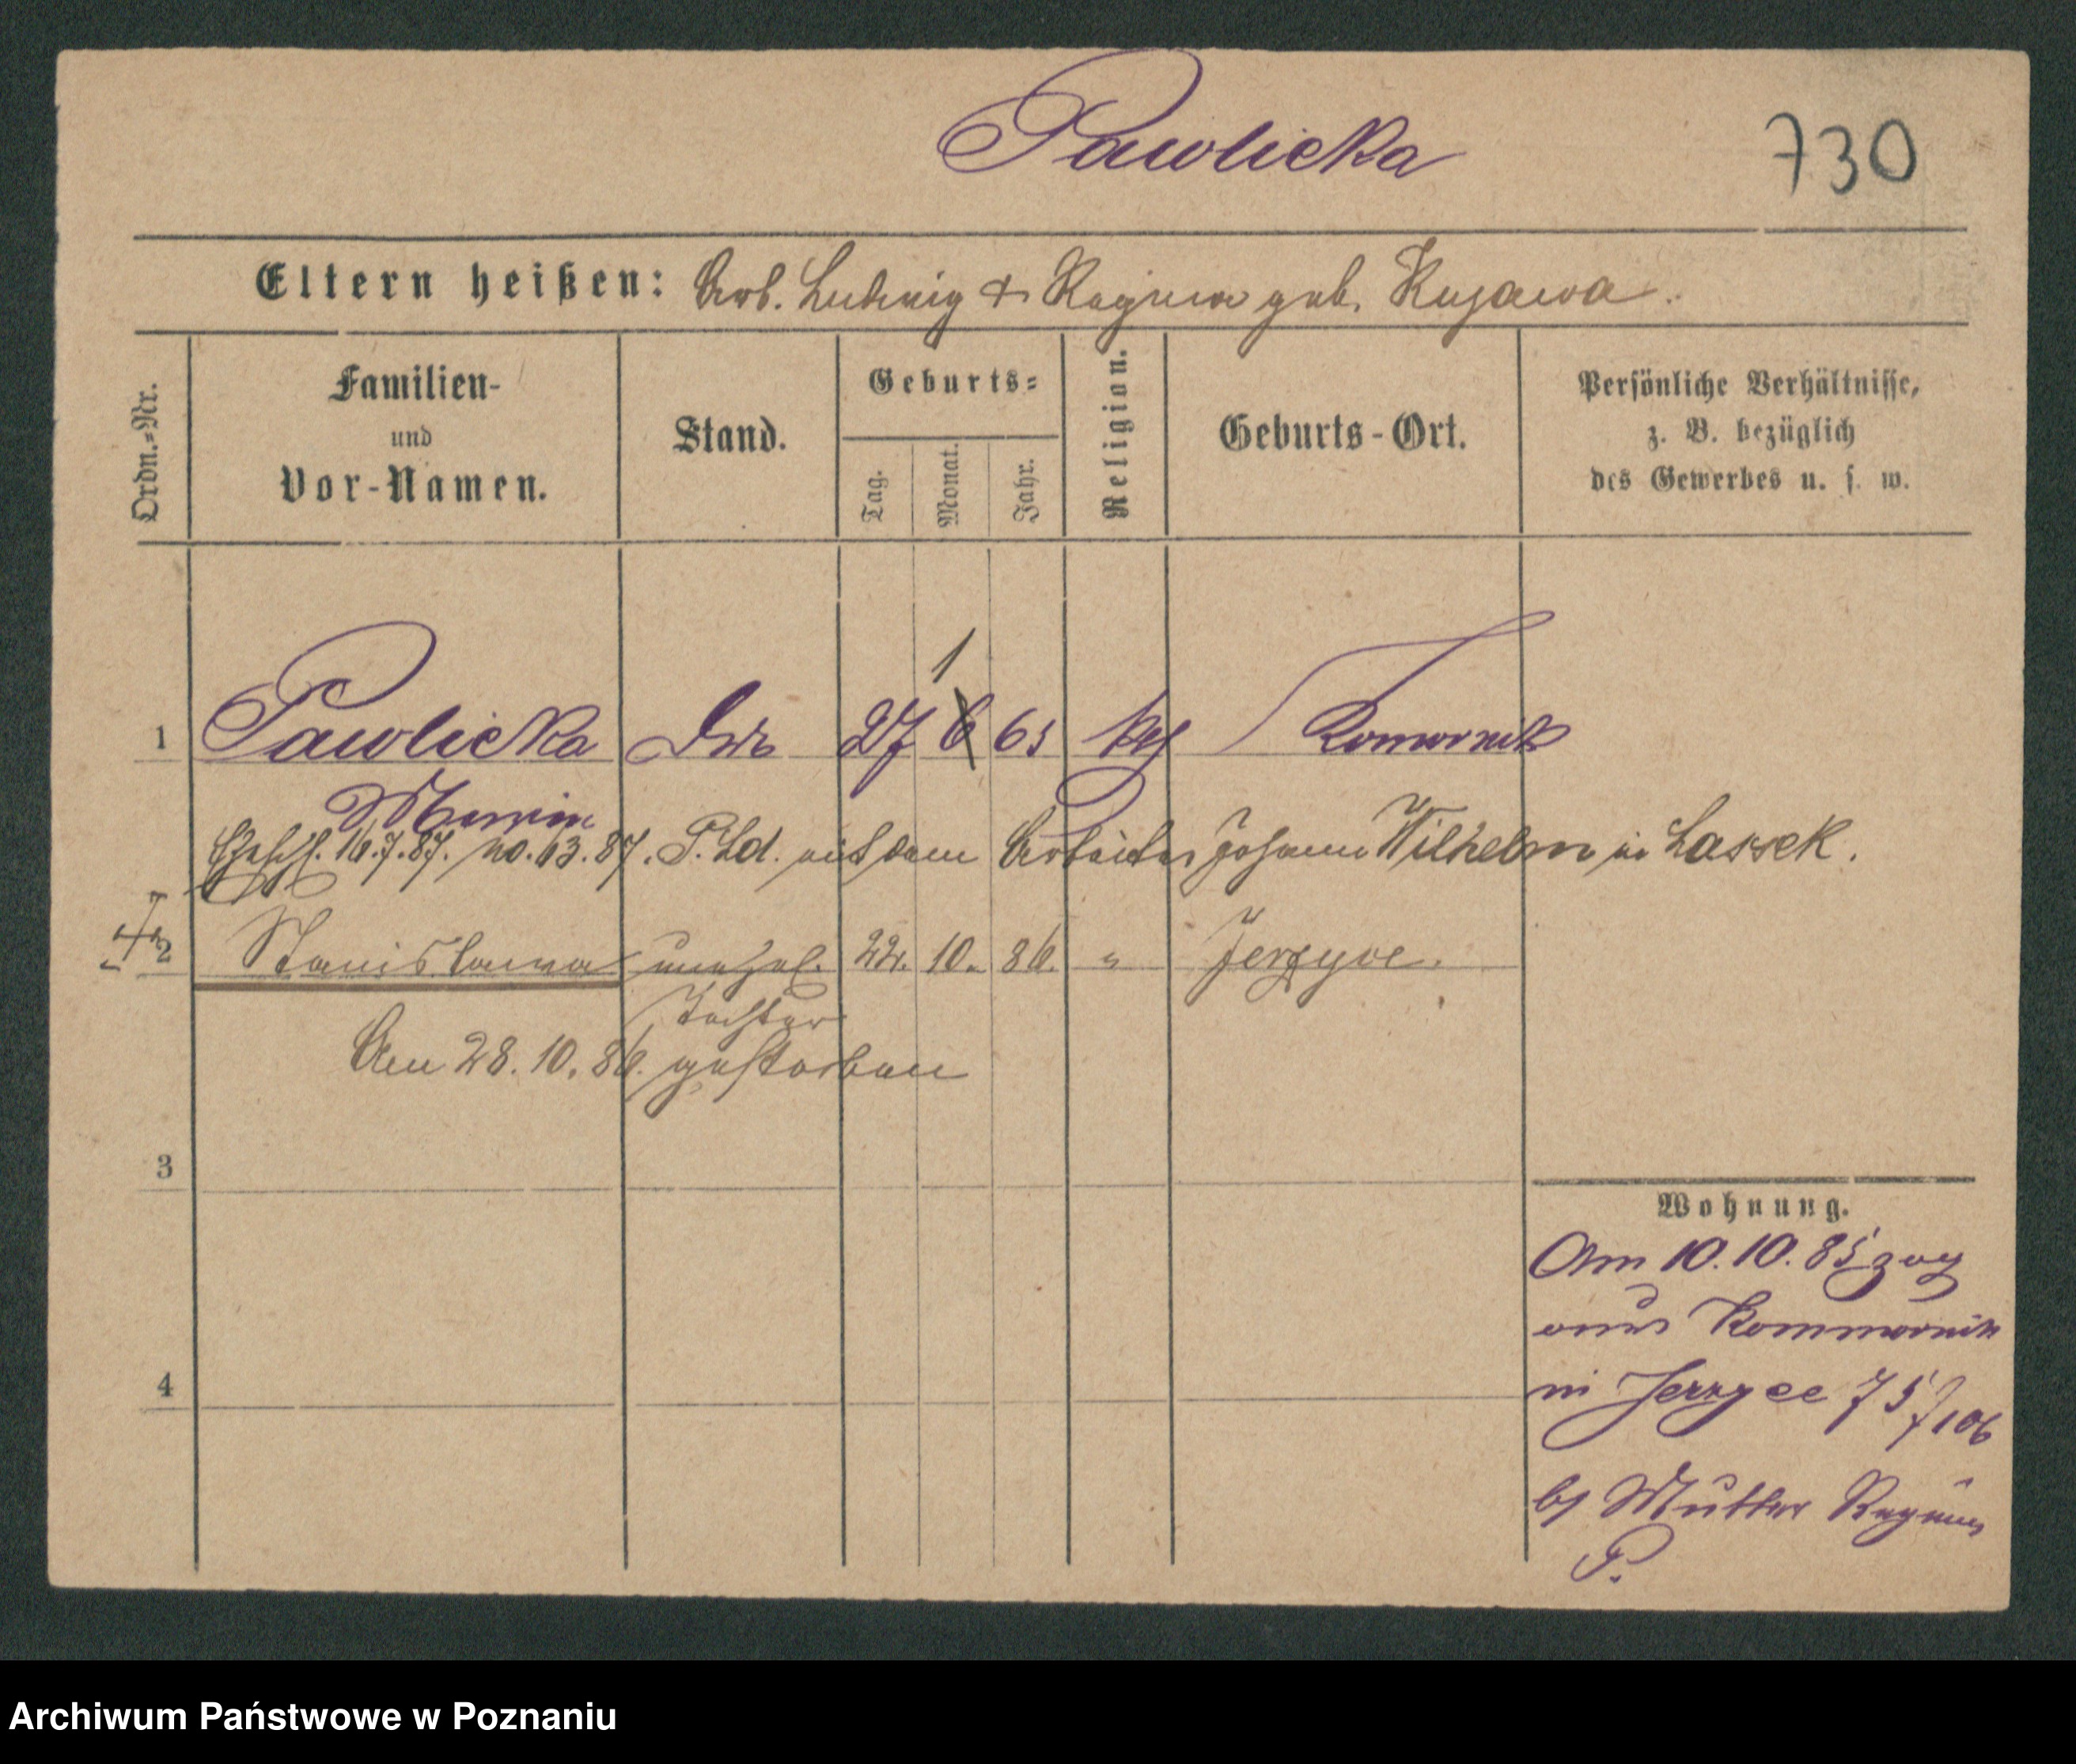 Pawlicka
730
Eltern heißen: Arb. Ludwig + Regina geb. Kujawa.
Ordn.-Nr.
Familien-
und
Vor-Namen.
Stand.
Geburts-
Tag.
Monat.
Jahr.
Religion.
Geburts-Ort.
Persönliche Verhältnisse,
z. B. bezüglich
des Gewerbes u. s. w.
1
1 Pawlicka 27 6 65 kath Komornik
Ehesch. 16.7.87. No. 63.87. P. Ld. mit dem Arbeiter Johann Wilhelm in Lassek.
2 Stanislawa unehel. 22. 10. 86. " Jerzyce.
Tochter
Am 28.10.86. gestorben
3
4
Wohnung.
Am 10.10.85 zog
aus Kommornik
in Jerzyce 75/106
bei Mutter Regina
P.